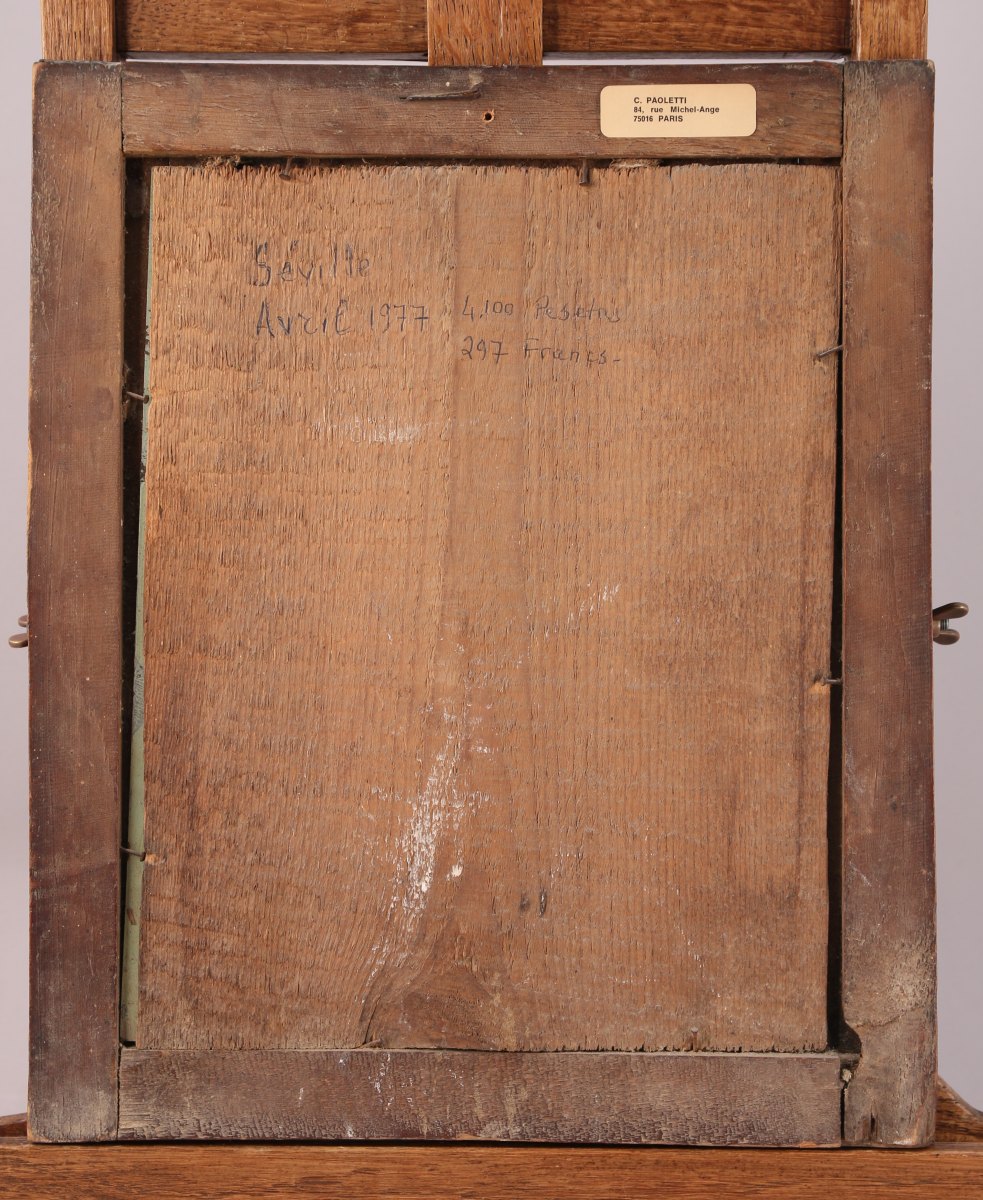 C. PAOLETTI
84, rue Michel-Ange
75016 PARIS
Séville
Avril 1977 4.100 Pesetas
297 Francs-